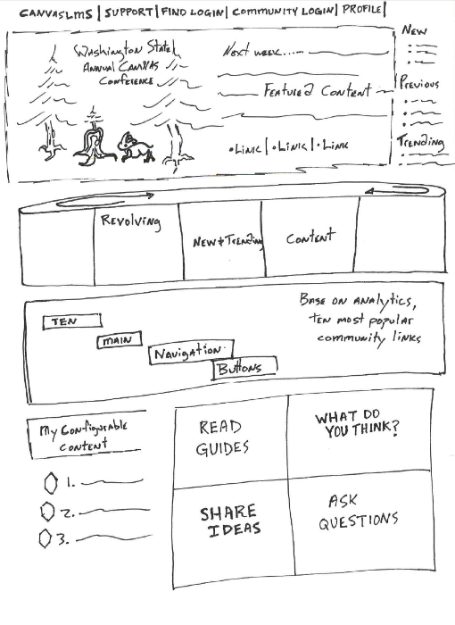 CANVASLMS | SUPPORT | FIND LOGIN | COMMUNITY LOGIN | PROFILE |
WASHINGTON STATE
ANNUAL CANVAS
CONFERENCE
NEXT WEEK....
FEATURED CONTENT
• LINK | • LINK | • LINK
NEW
PREVIOUS
TRENDING
REVOLVING
NEW & TRENDING
CONTENT
TEN
MAIN
NAVIGATION
BUTTONS
BASE ON ANALYTICS,
TEN MOST POPULAR
COMMUNITY LINKS
MY CONFIGURABLE
CONTENT
1.
2.
3.
READ
GUIDES
WHAT DO
YOU THINK?
SHARE
IDEAS
ASK
QUESTIONS